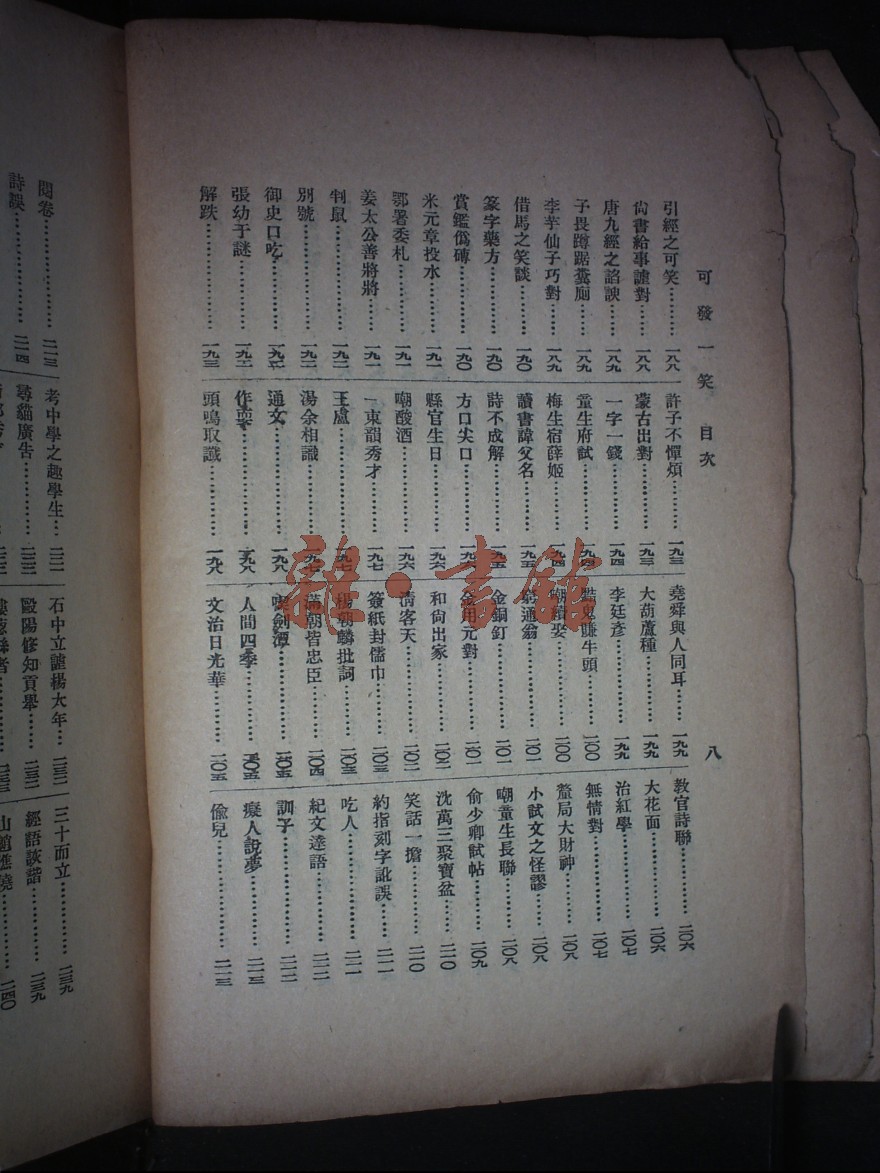 可發一笑 目次 八
引經之可笑………一八八
尙書給事謔對…一八八
唐九經之諂諛…一八九
子畏蹲踞糞廁…一八九
李芋仙子巧對…一八九
借馬之笑談………一九〇
篆字藥方…………一九〇
賞鑑僞磚…………一九〇
米元章投水………一九一
鄂署委札…………一九一
姜太公善將將……一九一
判鼠………………一九二
別號………………一九二
御史口吃…………一九二
張幼于謎…………一九二
解跌………………一九三
許子不憚煩………一九三
蒙古出對…………一九三
一字一錢…………一九四
童生府試…………一九四
梅生宿薛姬………一九四
讀書諱父名………一九五
詩不成解…………一九五
方口尖口…………一九六
縣官生日…………一九六
嘲酸酒……………一九六
一東韻秀才………一九七
王盧………………一九七
湯余相謔…………一九八
通文………………一九八
作惡………………一九八
頭鳴取讖…………一九八
堯舜與人同耳……一九九
大葫蘆種…………一九九
李廷彥……………一九九
鬼賺牛頭…………二〇〇
嘲續娶……………二〇〇
通翁………………二〇一
金銅釘……………二〇一
金用元對…………二〇一
和尙出家…………二〇二
淸客天……………二〇二
簽紙封儒巾………二〇三
楊朝麟批詞………二〇三
滿朝皆忠臣………二〇四
喫劍潭……………二〇五
人間四季…………二〇五
文治日光華………二〇五
教官詩聯…………二〇六
大花面……………二〇六
治紅學……………二〇七
無情對……………二〇七
釐局大財神………二〇八
小試文之怪謬……二〇八
嘲童生長聯………二〇八
俞少卿試帖………二〇九
沈萬三聚寶盆……二一〇
笑話一擔…………二一〇
約指刻字訛誤……二一一
吃人………………二一一
紀文達語…………二一二
訓子………………二一二
癡人說夢…………二一三
偸兒………………二一三
閱卷………………二一三
詩誤………………二一四
考中學之趣學生…
尋貓廣告…………
石中立謔楊大年…二三二
歐陽修知貢舉……二三二
三十而立…………二三九
經語詼諧…………二三九
二四〇